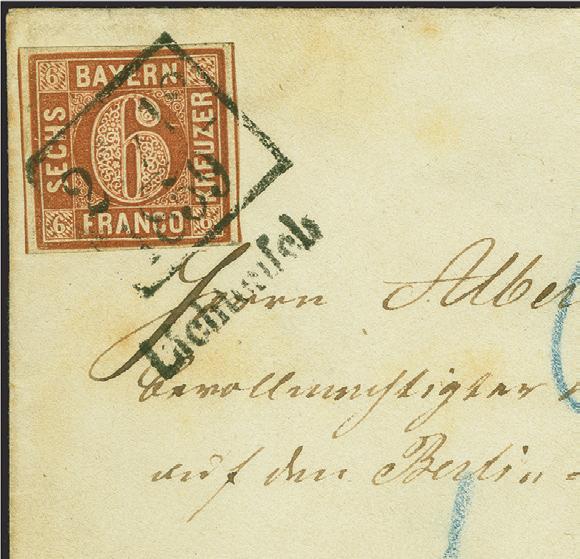 BAYERN
SECHS 6 KREUZER
FRANCO
Lichtenfels
Herrn Alber
bevollmächtigter
auf den Berlin-